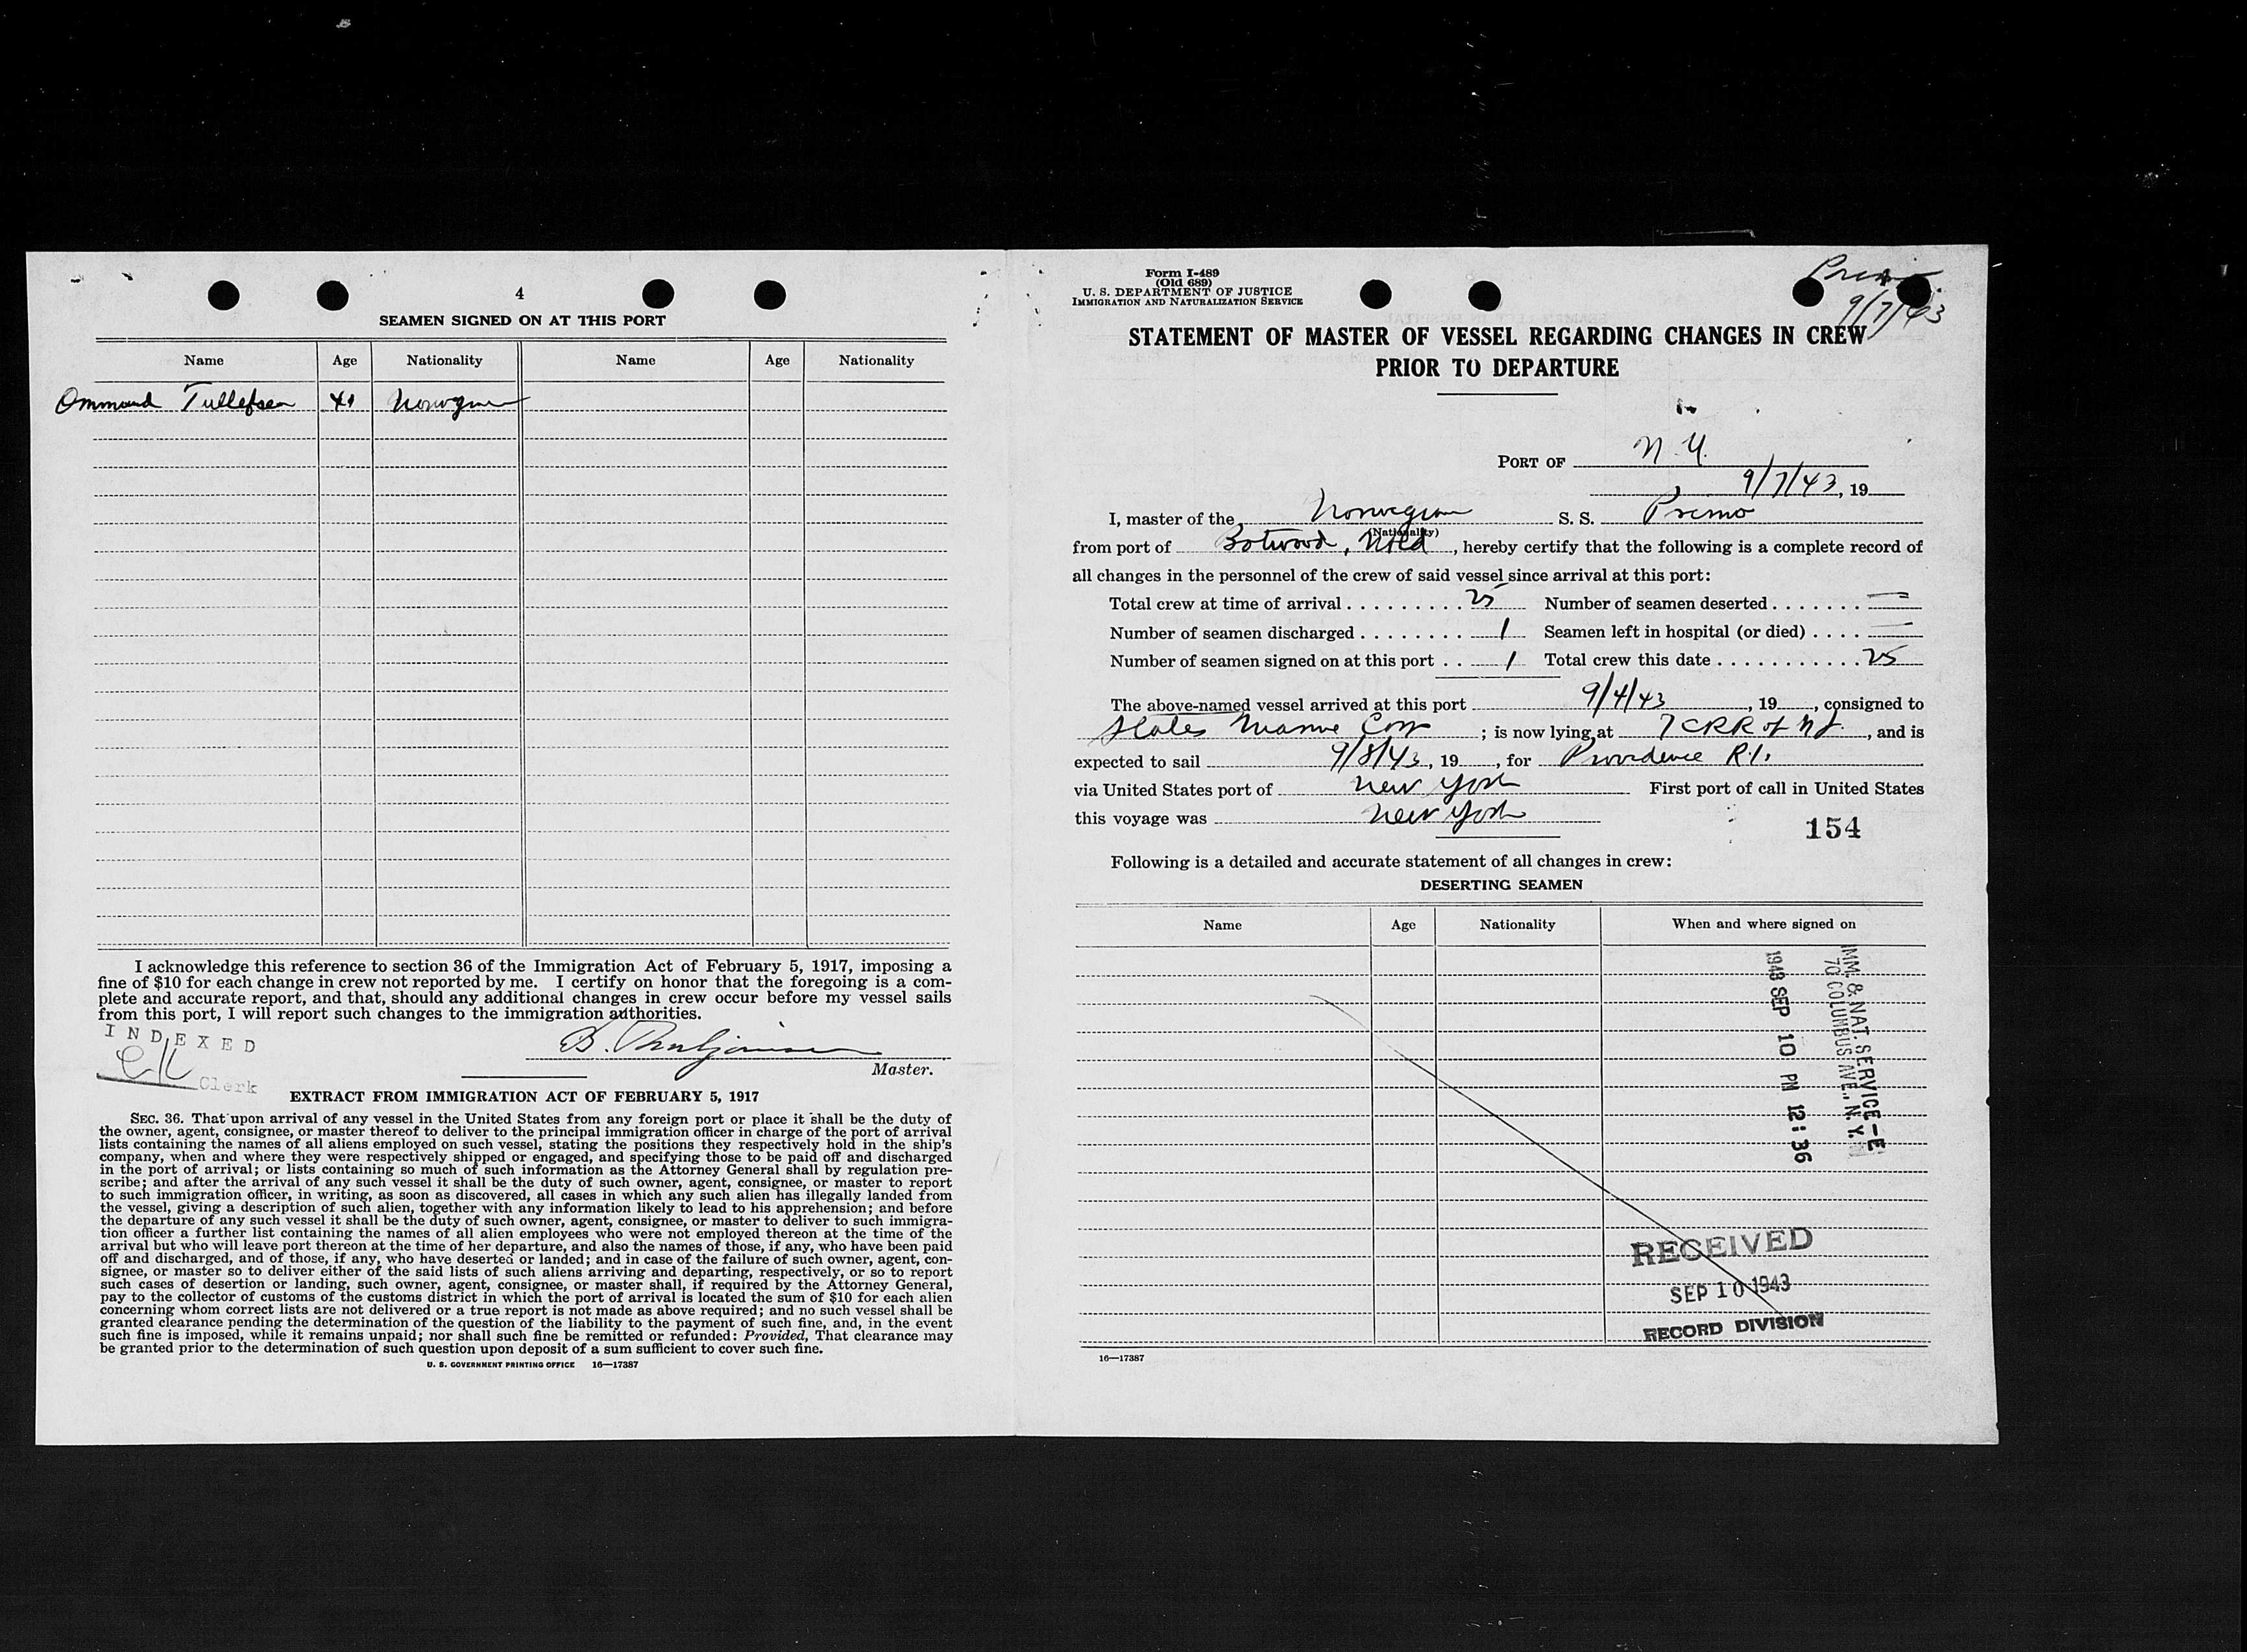 4
SEAMEN SIGNED ON AT THIS PORT
Name Age Nationality Name Age Nationality
Ommund Tullefsen 41 Norwegian
I acknowledge this reference to section 36 of the Immigration Act of February 5, 1917, imposing a
fine of $10 for each change in crew not reported by me. I certify on honor that the foregoing is a com-
plete and accurate report, and that, should any additional changes in crew occur before my vessel sails
from this port, I will report such changes to the immigration authorities.
INDEXED
Clerk
B.
Master.
EXTRACT FROM IMMIGRATION ACT OF FEBRUARY 5, 1917
SEC. 36. That upon arrival of any vessel in the United States from any foreign port or place it shall be the duty of
the owner, agent, consignee, or master thereof to deliver to the principal immigration officer in charge of the port of arrival
lists containing the names of all aliens employed on such vessel, stating the positions they respectively hold in the ship's
company, when and where they were respectively shipped or engaged, and specifying those to be paid off and discharged
in the port of arrival; or lists containing so much of such information as the Attorney General shall by regulation pre-
scribe; and after the arrival of any such vessel it shall be the duty of such owner, agent, consignee, or master to report
to such immigration officer, in writing, as soon as discovered, all cases in which any such alien has illegally landed from
the vessel, giving a description of such alien, together with any information likely to lead to his apprehension; and before
the departure of any such vessel it shall be the duty of such owner, agent, consignee, or master to deliver to such immigra-
tion officer a further list containing the names of all alien employees who were not employed thereon at the time of the
arrival but who will leave port thereon at the time of her departure, and also the names of those, if any, who have been paid
off and discharged, and of those, if any, who have deserted or landed; and in case of the failure of such owner, agent, con-
signee, or master so to deliver either of the said lists of such aliens arriving and departing, respectively, or so to report
such cases of desertion or landing, such owner, agent, consignee, or master shall, if required by the Attorney General,
pay to the collector of customs of the customs district in which the port of arrival is located the sum of $10 for each alien
concerning whom correct lists are not delivered or a true report is not made as above required; and no such vessel shall be
granted clearance pending the determination of the question of the liability to the payment of such fine, and, in the event
such fine is imposed, while it remains unpaid; nor shall such fine be remitted or refunded: Provided, That clearance may
be granted prior to the determination of such question upon deposit of a sum sufficient to cover such fine.
U. S. GOVERNMENT PRINTING OFFICE 16—17387
Form I-489
(Old 689)
U. S. DEPARTMENT OF JUSTICE
IMMIGRATION AND NATURALIZATION SERVICE
9/7/43
STATEMENT OF MASTER OF VESSEL REGARDING CHANGES IN CREW
PRIOR TO DEPARTURE
PORT OF N. Y.
9/7/43, 19
I, master of the Norwegian S. S. Premo
(Nationality)
from port of Botwood, Nfld, hereby certify that the following is a complete record of
all changes in the personnel of the crew of said vessel since arrival at this port:
Total crew at time of arrival 25 Number of seamen deserted —
Number of seamen discharged 1 Seamen left in hospital (or died) —
Number of seamen signed on at this port 1 Total crew this date 25
The above-named vessel arrived at this port 9/4/43, 19, consigned to
States Marine Corp; is now lying at 7 CRR of NJ, and is
expected to sail 9/8/43, 19, for Providence R.I.
via United States port of New York First port of call in United States
this voyage was New York
154
Following is a detailed and accurate statement of all changes in crew:
DESERTING SEAMEN
Name Age Nationality When and where signed on
IMM. & NAT. SERVICE-E
70 COLUMBUS AVE., N.Y.
1943 SEP 10 PM 12:36
RECEIVED
SEP 10 1943
RECORD DIVISION
16—17387